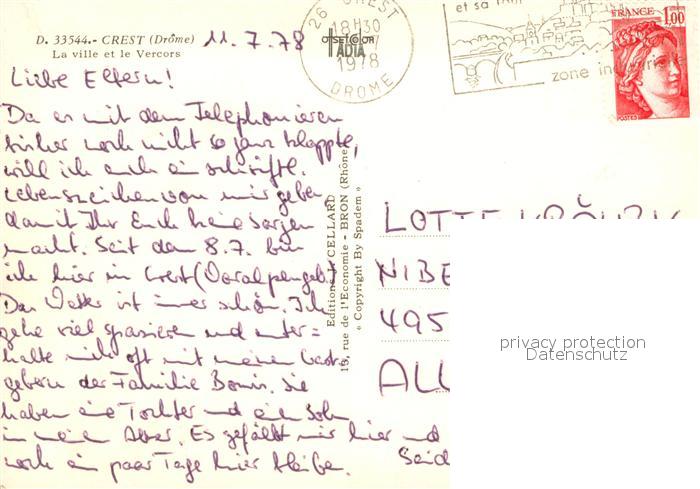 D. 33544.- CREST (Drôme)
La ville et le Vercors
11.7.78
26 CREST
18H30
1978
DROME
OFFSET COLOR
ADIA
et sa
zone in
FRANCE
1,00
POSTES
Liebe Eltern!
Da es mit dem Telephonieren
bisher noch nicht so ganz klappte,
will ich euch ein schriftl.
Lebenszeichen von mir geben,
damit Ihr Euch keine Sorgen
macht. Seit dem 8.7. bin
ich hier in Crest (Voralpengeb.)
Das Wetter ist immer schön. Ich
gehe viel spazieren und unter=
halte mich oft mit meinen Gast-
gebern der Familie. Sie
haben eine Tochter und ein Sohn
in mein Alter. Es gefällt mir hier und
noch ein paar Tage hier bleiben.
Editions J. CELLARD
19, rue de l'Economie - BRON (Rhône)
« Copyright By Spadem »
LOTTE
NIBE
495
ALL
privacy protection
Datenschutz